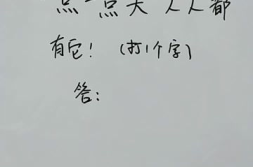 点一点大 人人都
有它！（打1个字）
答：